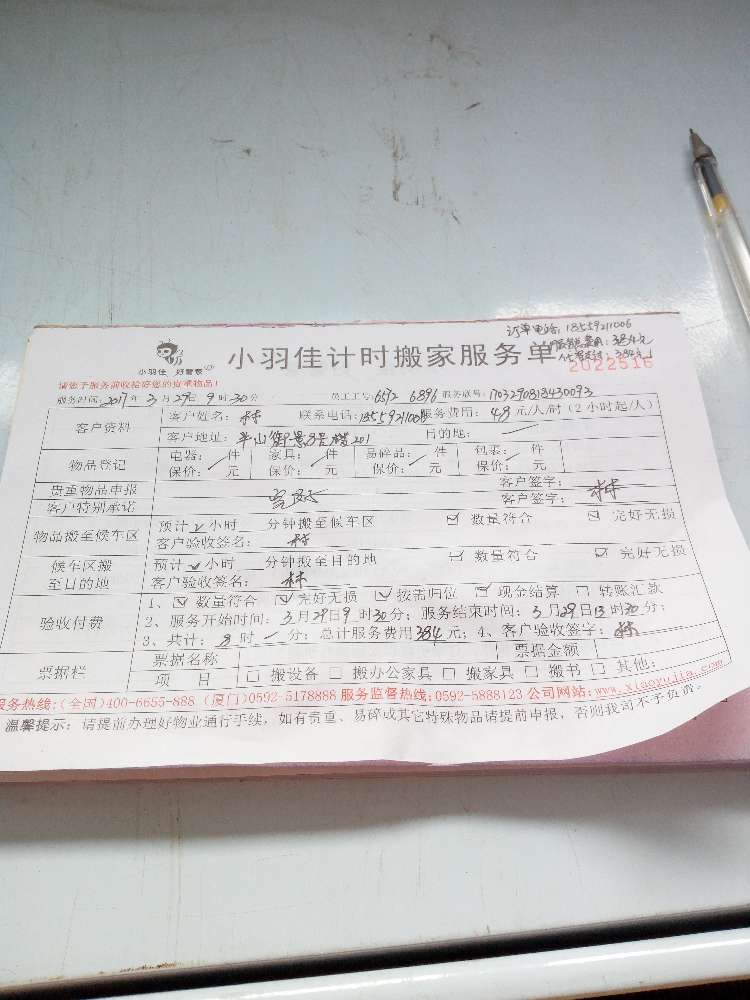 订单电话：18559211006
服务总费用：384元
小羽佳 好管家
小羽佳计时搬家服务单
2022516
请您于服务前收拾好您的贵重物品！
服务时间：2017年3月29日9时30分 员工工号：6572 6896 服务联号：1703290813430093
客户资料
客户姓名：林 联系电话：18559211006 服务费用：48元/人/时（2小时起/人）
客户地址：半山御景 号楼201 目的地：
物品登记
电器： 件 家具： 件 易碎品： 件 包装： 件
保价： 元 保价： 元 保价： 元 保价： 元
贵重物品申报 客户签字：
客户特别承诺 客户签字：林
物品搬至候车区
预计 小时 分钟搬至候车区 ☑ 数量符合 ☑ 完好无损
客户验收签名：林
候车区搬至目的地
预计 小时 分钟搬至目的地 ☑ 数量符合 ☑ 完好无损
客户验收签名：林
验收付费
1、☑ 数量符合 ☑ 完好无损 ☑ 按需归位 ☑ 现金结算 □ 转账汇款
2、服务开始时间：3月29日9时30分；服务结束时间：3月29日13时30分；
3、共计：8时 分；总计服务费用384元；4、客户验收签字：林
票据栏
票据名称 票据金额
项 目 □ 搬设备 □ 搬办公家具 □ 搬家具 □ 搬书 □ 其他：
服务热线：(全国)400-6655-888 (厦门)0592-5178888 服务监督热线：0592-5888123 公司网站：www.xiaoyujia.com
温馨提示：请提前办理好物业通行手续，如有贵重、易碎或其它特殊物品请提前申报，否则我司不予负责。